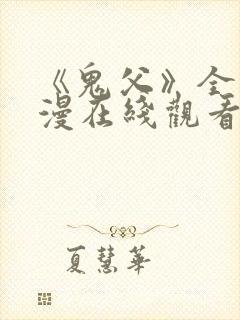 《鬼父》全
漫在綫觀看
夏慧華